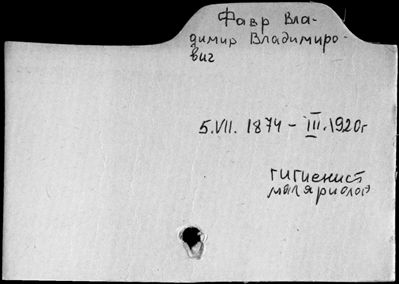 Фавр Вла-
димир Владимиро-
вич
5.VII. 1874 – III.1920г
гигиенист
маляриолог